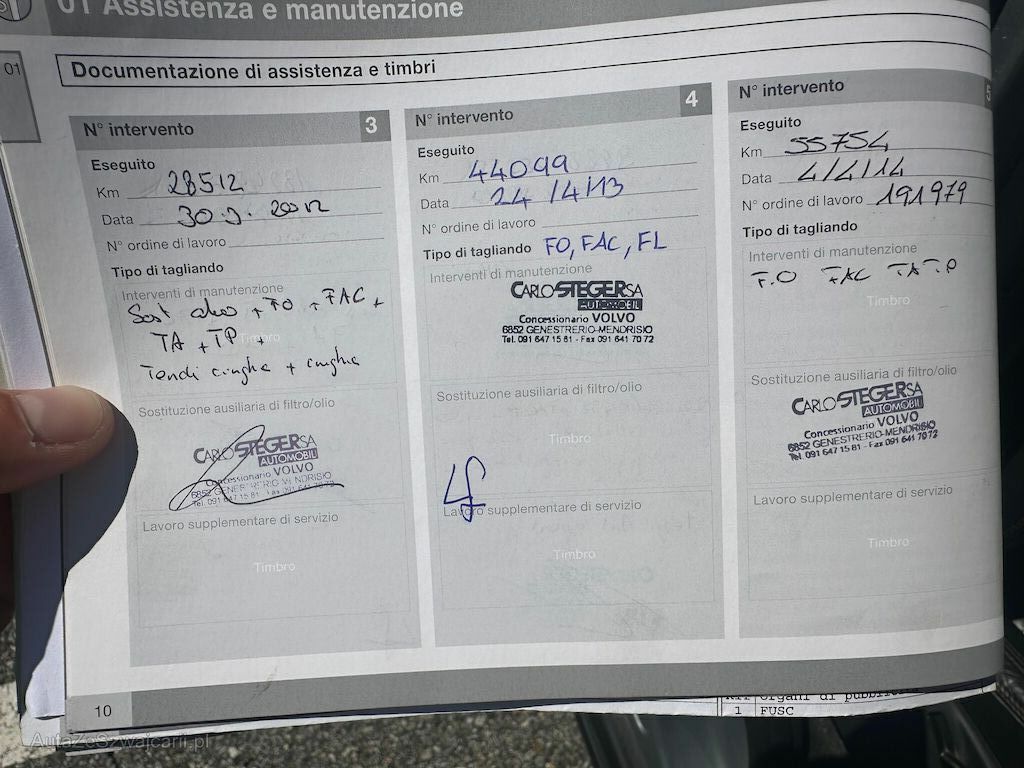 01 Assistenza e manutenzione
01
Documentazione di assistenza e timbri
N° intervento 3
Eseguito
Km 28512
Data 30.9.2012
N° ordine di lavoro
Tipo di tagliando
Interventi di manutenzione
Sost olio + FO + FAC +
TA + TP
Timbro
Tendi cinghia + cinghia
Sostituzione ausiliaria di filtro/olio
CARLO STEGER SA
AUTOMOBILI
Concessionario VOLVO
6852 GENESTRERIO-MENDRISIO
Tel. 091 647 15 81 - Fax 091 641 70 72
Lavoro supplementare di servizio
Timbro
N° intervento 4
Eseguito
Km 44099
Data 24/4/13
N° ordine di lavoro
Tipo di tagliando FO, FAC, FL
Interventi di manutenzione
CARLO STEGER SA
AUTOMOBILI
Concessionario VOLVO
6852 GENESTRERIO-MENDRISIO
Tel. 091 647 15 81 - Fax 091 641 70 72
Sostituzione ausiliaria di filtro/olio
Timbro
Lavoro supplementare di servizio
Timbro
N° intervento 5
Eseguito
Km 55754
Data 4/4/14
N° ordine di lavoro 191979
Tipo di tagliando
Interventi di manutenzione
F.O FAC TA T.P
Timbro
Sostituzione ausiliaria di filtro/olio
CARLO STEGER SA
AUTOMOBILI
Concessionario VOLVO
6852 GENESTRERIO-MENDRISIO
Tel. 091 647 15 81 - Fax 091 641 70 72
Lavoro supplementare di servizio
Timbro
10
1 FUSC
AutaZeSzwajcarii.pl